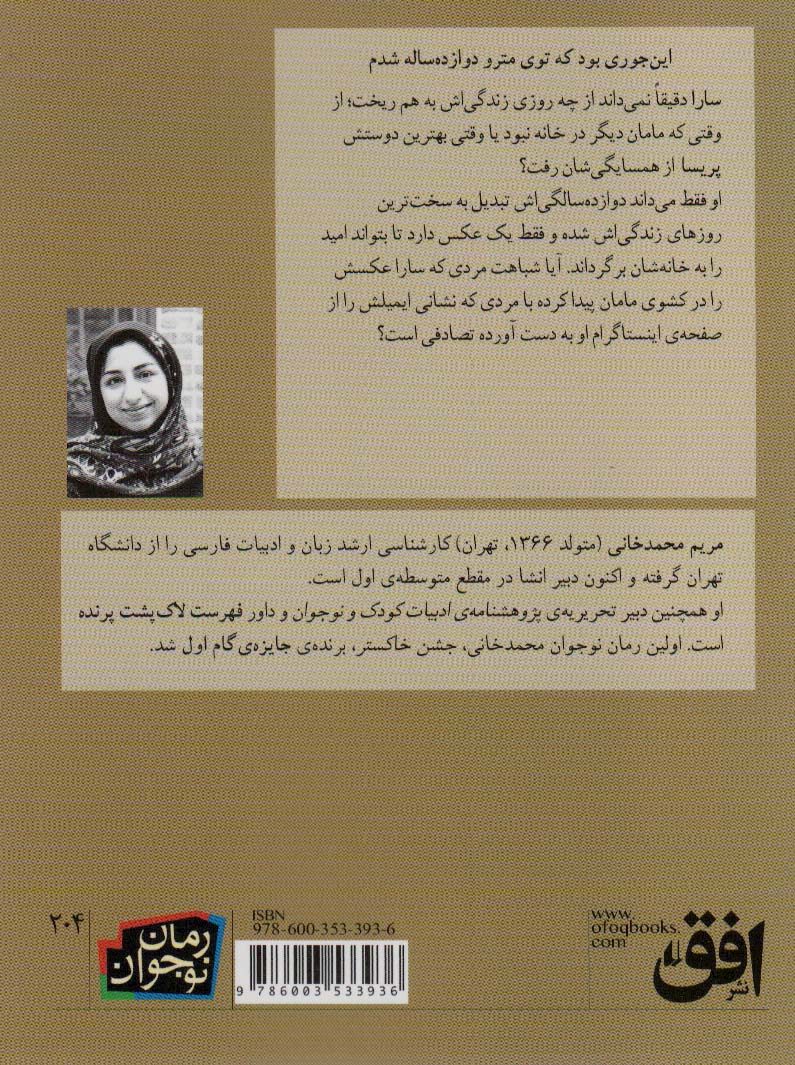 این‌جوری بود که توی مترو دوازده‌ساله شدم
سارا دقیقاً نمی‌داند از چه روزی زندگی‌اش به هم ریخت؛ از
وقتی که مامان دیگر در خانه نبود یا وقتی بهترین دوستش
پریسا از همسایگی‌شان رفت؟
او فقط می‌داند دوازده‌سالگی‌اش تبدیل به سخت‌ترین
روزهای زندگی‌اش شده و فقط یک عکس دارد تا بتواند امید
را به خانه‌شان برگرداند. آیا شباهت مردی که سارا عکسش
را در کشوی مامان پیدا کرده با مردی که نشانی ایمیلش را از
صفحه‌ی اینستاگرام او به دست آورده تصادفی است؟
مریم محمدخانی (متولد ۱۳۶۶، تهران) کارشناسی ارشد زبان و ادبیات فارسی را از دانشگاه
تهران گرفته و اکنون دبیر انشا در مقطع متوسطه‌ی اول است.
او همچنین دبیر تحریریه‌ی پژوهشنامه‌ی ادبیات کودک و نوجوان و داور فهرست لاک‌پشت پرنده
است. اولین رمان نوجوان محمدخانی، جشن خاکستر، برنده‌ی جایزه‌ی گام اول شد.
افق
نشر
www.
ofoqbooks.
com
ISBN
978-600-353-393-6
9 786003 533936
رمان
نوجوان
۲۰۴